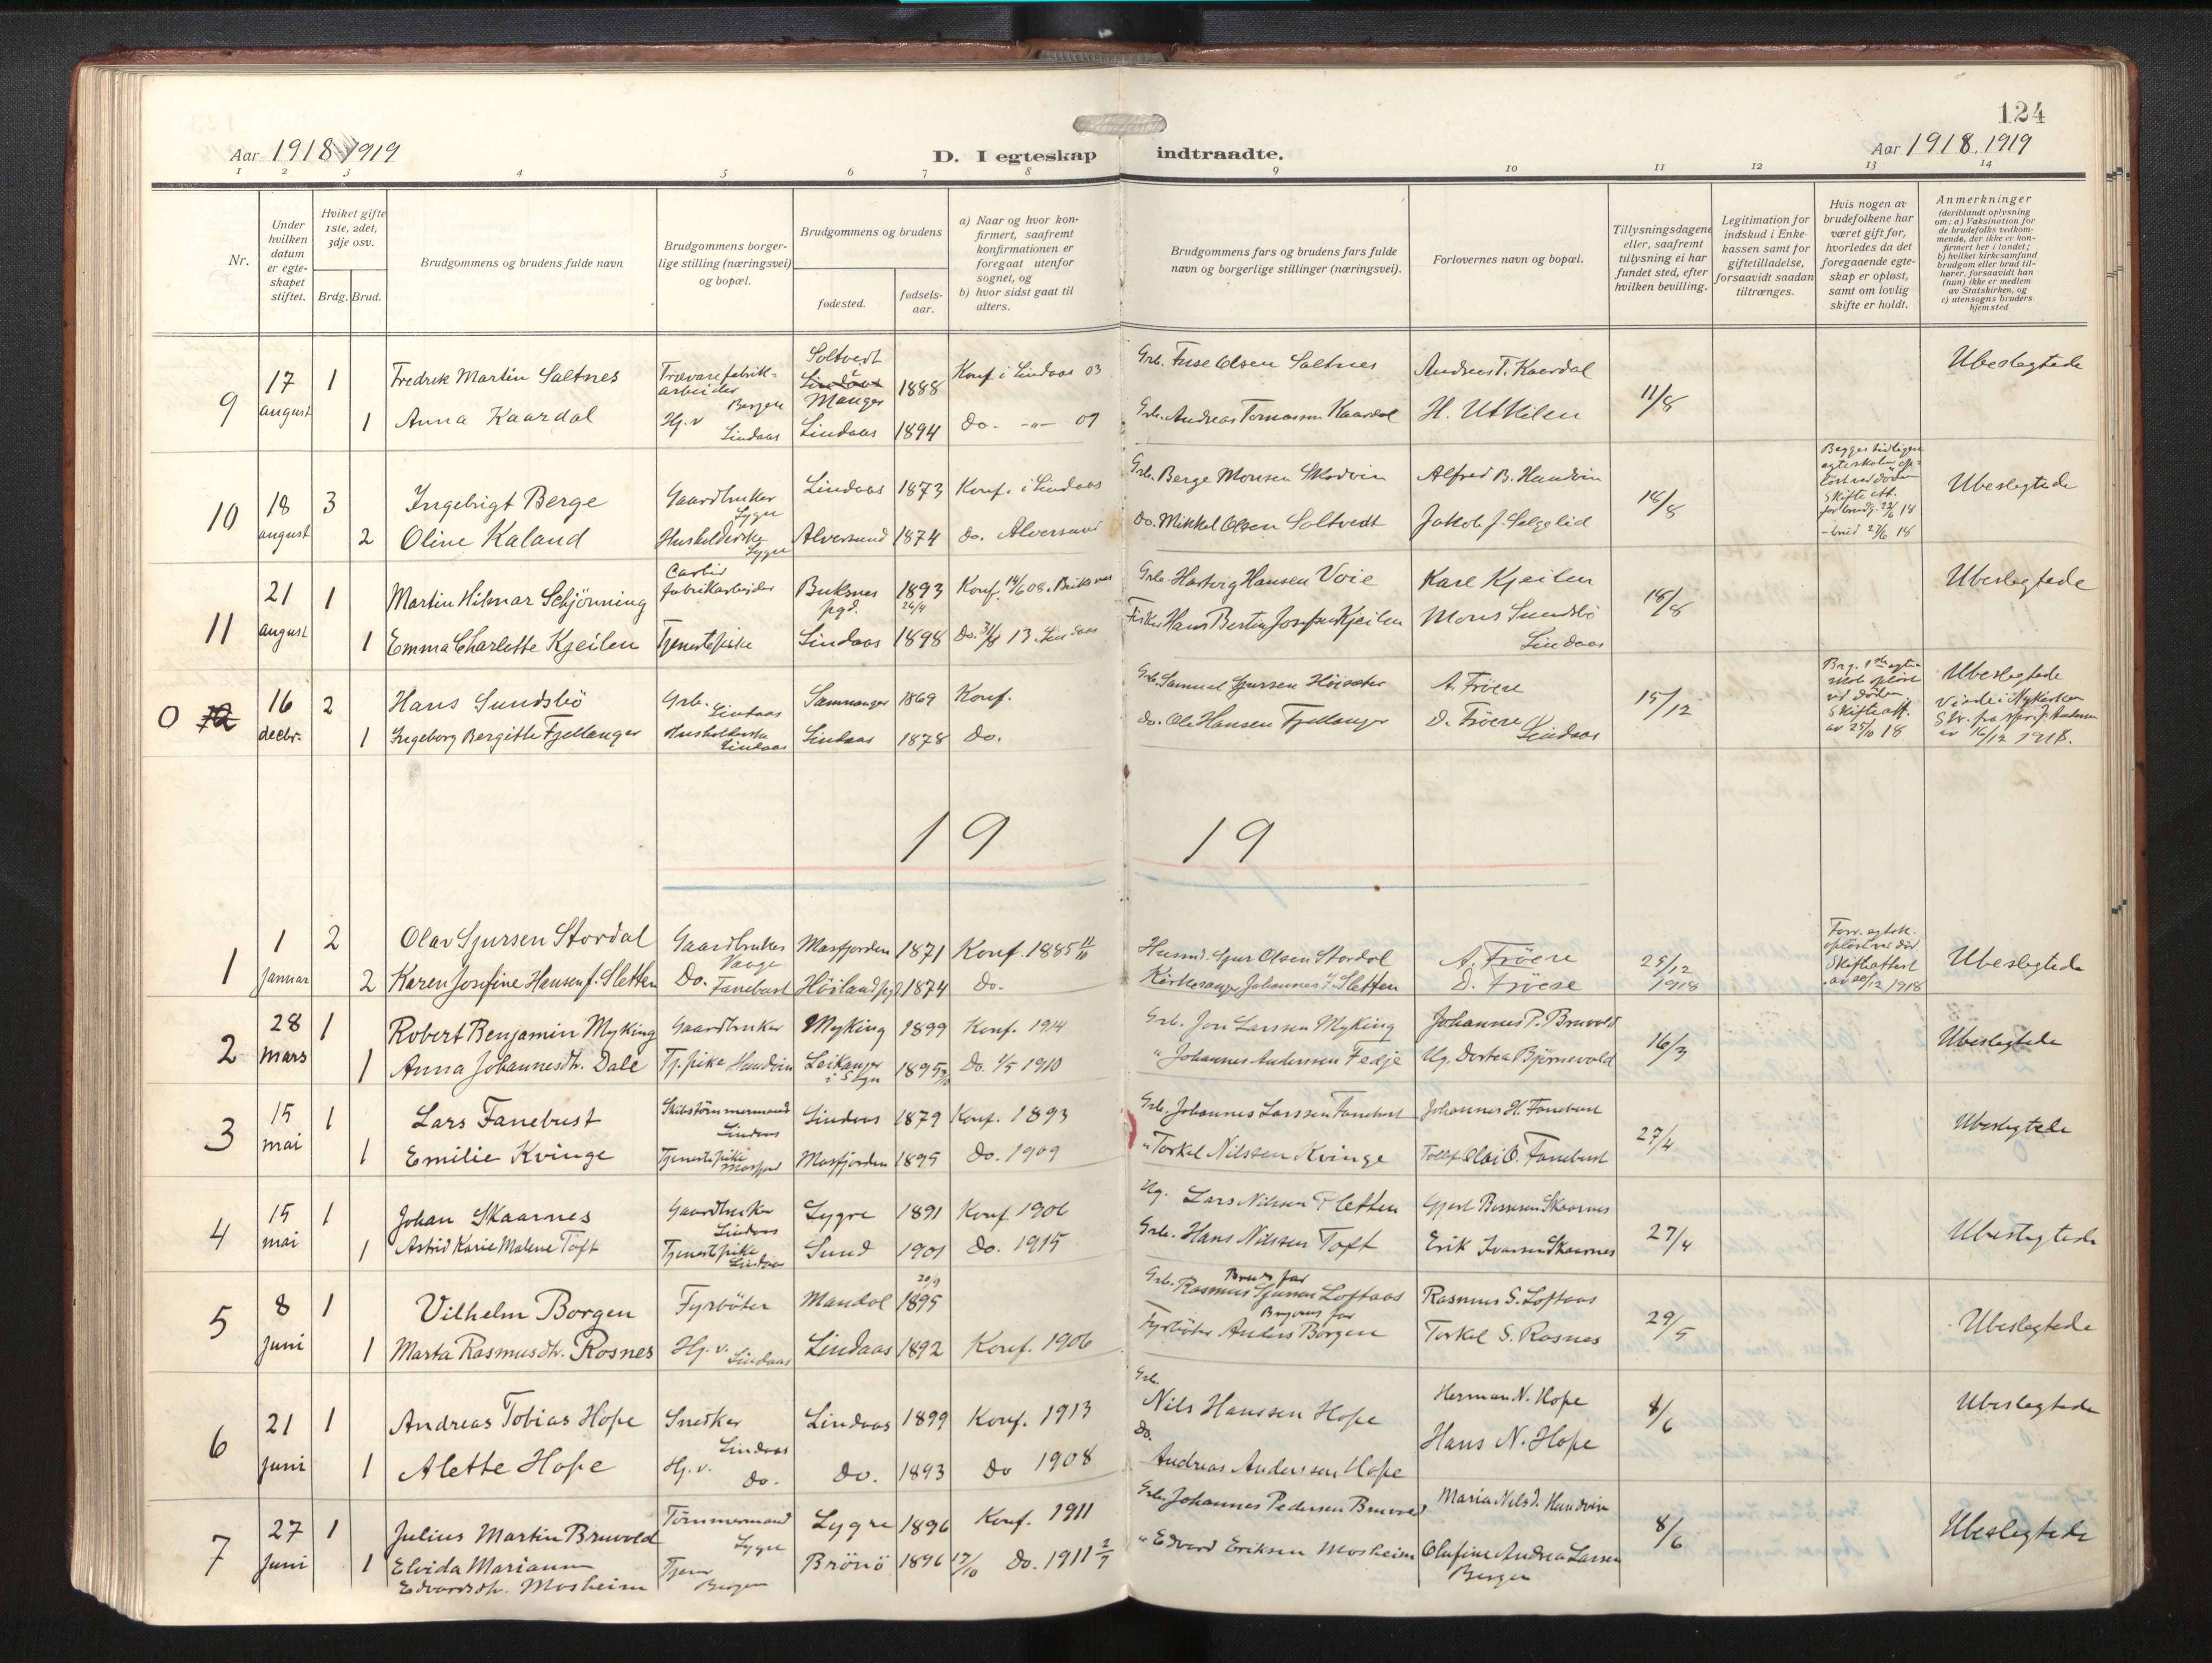 124
Aar 1918-1919
D. I egteskap indtraadte.
Aar 1918, 1919
1 2 3 4 5 6 7 8 9 10 11 12 13 14
Nr.
Under hvilken datum er egteskapet stiftet.
Hviket gifte 1ste, 2det, 3dje osv.
Brdg. Brud.
Brudgommens og brudens fulde navn
Brudgommens borgerlige stilling (næringsvei) og bopæl.
Brudgommens og brudens
fødested.
fødselsaar.
a) Naar og hvor konfirmert, saafremt konfirmationen er foregaat utenfor sognet, og
b) hvor sidst gaat til alters.
Brudgommens fars og brudens fars fulde navn og borgerlige stillinger (næringsvei).
Forlovernes navn og bopæl.
Tillysningsdagene eller, saafremt tillysning ei har fundet sted, efter hvilken bevilling.
Legitimation for indskud i Enkekassen samt for giftetilladelse, forsaavidt saadan tiltrænges.
Hvis nogen av brudefolkene har været gift før, hvorledes da det foregaaende egteskap er opløst, samt om lovlig skifte er holdt.
Anmerkninger
(deriblandt oplysning om: a) Vaksination for de brudefolks vedkommende, der ikke er konfirmert her i landet; b) hvilket kirkesamfund brudgom eller brud tilhører, forsaavidt han (hun) ikke er medlem av Statskirken, og c) utensogns bruders hjemsted
9 17 august 1 Fredrik Martin Saltnes Trævarefabrikarbeider Bergen Soltvedt Lindaas Manger 1888 Konf i Lindaas 03 Grb. Olsen Saltnes Andreas T. Kaardal 11/8 Ubeslegtede
1 Anna Kaardal Hj. v Lindaas Lindaas 1894 Do. -"- 09 Grb. Andreas Tomassen Kaardal H. Utkilen
10 18 august 3 Ingebrigt Berge Gaardbruker Lygre Lindaas 1873 Konf. i Lindaas Grb. Berge Monsen Skodvin Alfred B. Hundvin 18/8 Begges tidligere egteskaber opløst ved døden Skifte att. for brudg. 22/6 18 - brud 27/6 18 Ubeslegtede
2 Oline Kaland Husholderske Lygre Alversund 1874 Do. Alversund Do. Mikkel Olsen Soltvedt Jakob J.
11 21 august 1 Martin Hilmar Schjönning Carbid fabrikarbeider Buksnes pgd. 1893 26/4 Konf. 14/6 08. Buksnes Grb. Hartvig Hansen Voie Karl Kjeilen 18/8 Ubeslegtede
1 Emma Charlotte Kjeilen Tjenestepike Lindaas 1898 Do. 13. Lindaas Fisker Hans Bertin Kjeilen Mons Sundsbö Lindaas
0 12 16 decbr. 2 Hans Sundsbö Grb. Lindaas Samnanger 1869 Konf. Grb. Samuel Sjursen Höisæter A. Fröere 15/12 Brg. 1ste egteskab opløst ved døden. Skifteatt. av 25/10 18 Ubeslegtede Viede i Nykirken av 16/12 1918.
1 Ingeborg Bergitte Fjellanger Husholderske Lindaas Lindaas 1878 Do. do. Ole Hansen Fjellanger D. Fröere Lindaas
19 19
1 1 Januar 2 Olav Sjursen Stordal Gaardbruker Vaage Masfjorden 1871 Konf. 1885 11/10 Husmd. Sjur Olsen Stordal A. Fröere 25/12 1918 Forr. egtsk. opløst ved død Skifteattest av 20/12 1918 Ubeslegtede
2 Karen Josefine Hansen f. Sletten Do. Fanebust Höiland pgd 1874 Do. Kirkesanger Johannes Sletten D. Fröere
2 28 Mars 1 Robert Benjamin Myking Gaardbruker Myking 1899 Konf. 1914 Grb. Jon Larssen Myking Johannes P. Bruvold 16/3 Ubeslegtede
1 Anna Johannesdtr. Dale Tj. pike Hundvin Leikanger i Sogn 1895 Do. 1/5 1910 " Johannes Andersen Fedje Ug. Dortea Björnevold
3 15 mai 1 Lars Fanebust Skibstömmermand Lindaas Lindaas 1879 Konf. 1893 Grb. Johannes Larssen Fanebust Johannes H. Fanebust 27/4 Ubeslegtede
1 Emilie Kvinge Tjenestepike Masfjord Masfjorden 1895 Do. 1909 " Torkel Nilssen Kvinge Olai O. Fanebust
4 15 mai 1 Johan Skaarnes Gaardbruker Lindaas Lygre 1891 Konf 1906 Ug. Lars Nilssen Sletten Skaarnes 27/4 Ubeslegtede
1 Astrid Karie Malene Toft Tjenestepike Lindaas Sund 1901 Do. 1915 Grb. Hans Nilssen Toft Erik Ivarsen Skaarnes
5 8 Juni 1 Vilhelm Borgen Fyrböter Mandal 20/9 1895 Bruds far Grb. Rasmus Sjursen Loftaas Rasmus S. Loftaas 29/5 Ubeslegtede
1 Marta Rasmusdtr. Rosnes Hj. v. Lindaas Lindaas 1892 Konf. 1906 Brgoms far Fyrböter Anders Borgen Torkel S. Rosnes
6 21 juni 1 Andreas Tobias Hope Snedker Lindaas Lindaas 1899 Konf. 1913 Grb. Nils Hanssen Hope Herman N. Hope 8/6 Ubeslegtede
1 Alette Hope Hj. v. do. Do. 1893 Do 1908 Do. Andreas Andersen Hope Hans N. Hope
7 27 Juni 1 Julius Martin Bruvold Tömmermand Lygre Lygre 1896 Konf. 1911 Grb. Johannes Pedersen Bruvold Maria Nilsd. Hundvin 8/6 Ubeslegtede
1 Elvida Marianne Edvardsdtr. Mosheim Tjen Bergen Brönö 1896 17/10 Do. 1911 2/7 " Edvard Eriksen Mosheim Olufine Andrea Larsen Bergen